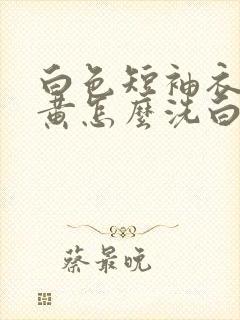 白色短袖衣
黄怎麽洗白
蔡最晚